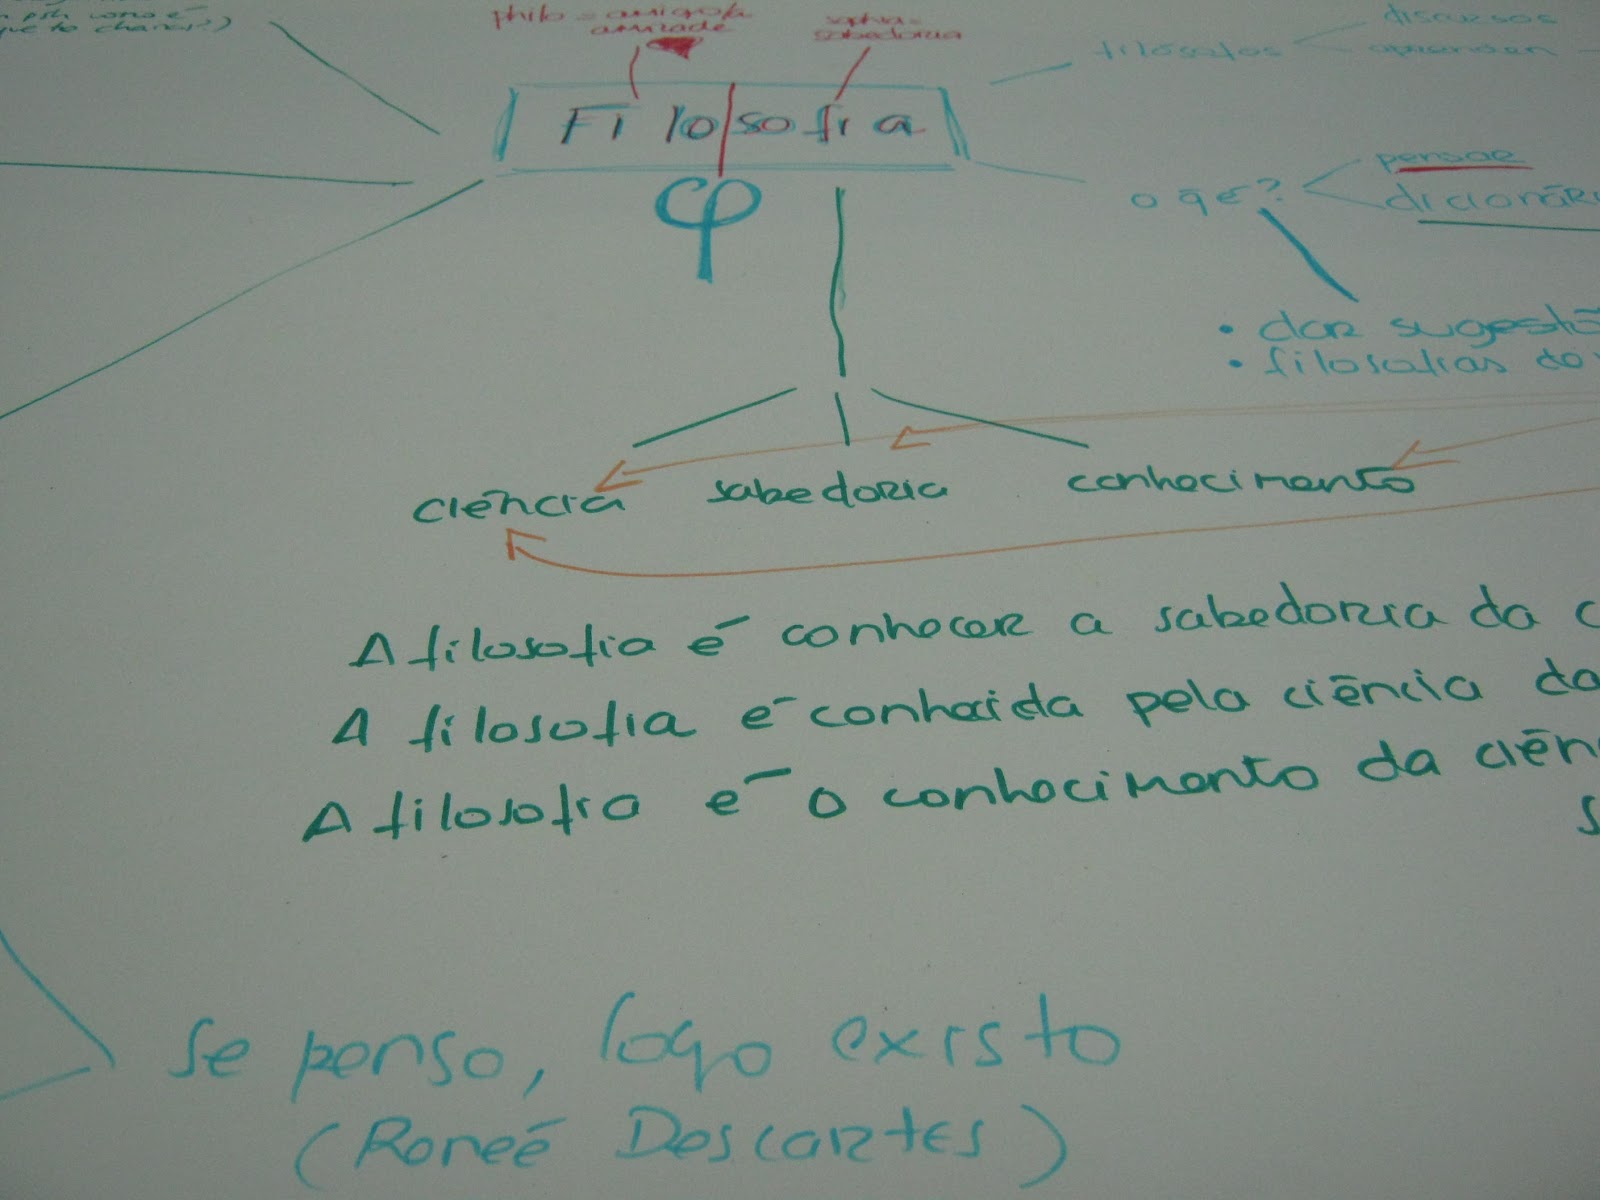 philo = amigo/a
amizade
sophia =
sabedoria
filósofos
discursos
aprendem
Filosofia
φ
o q é?
pensar
dicionári
• dar sugestõ
• filosofias do
ciência sabedoria conhecimento
A filosofia é conhecer a sabedoria da c
A filosofia é conhecida pela ciência da
A filosofia é o conhecimento da ciên
s
Se penso, logo existo
(Reneé Descartes)